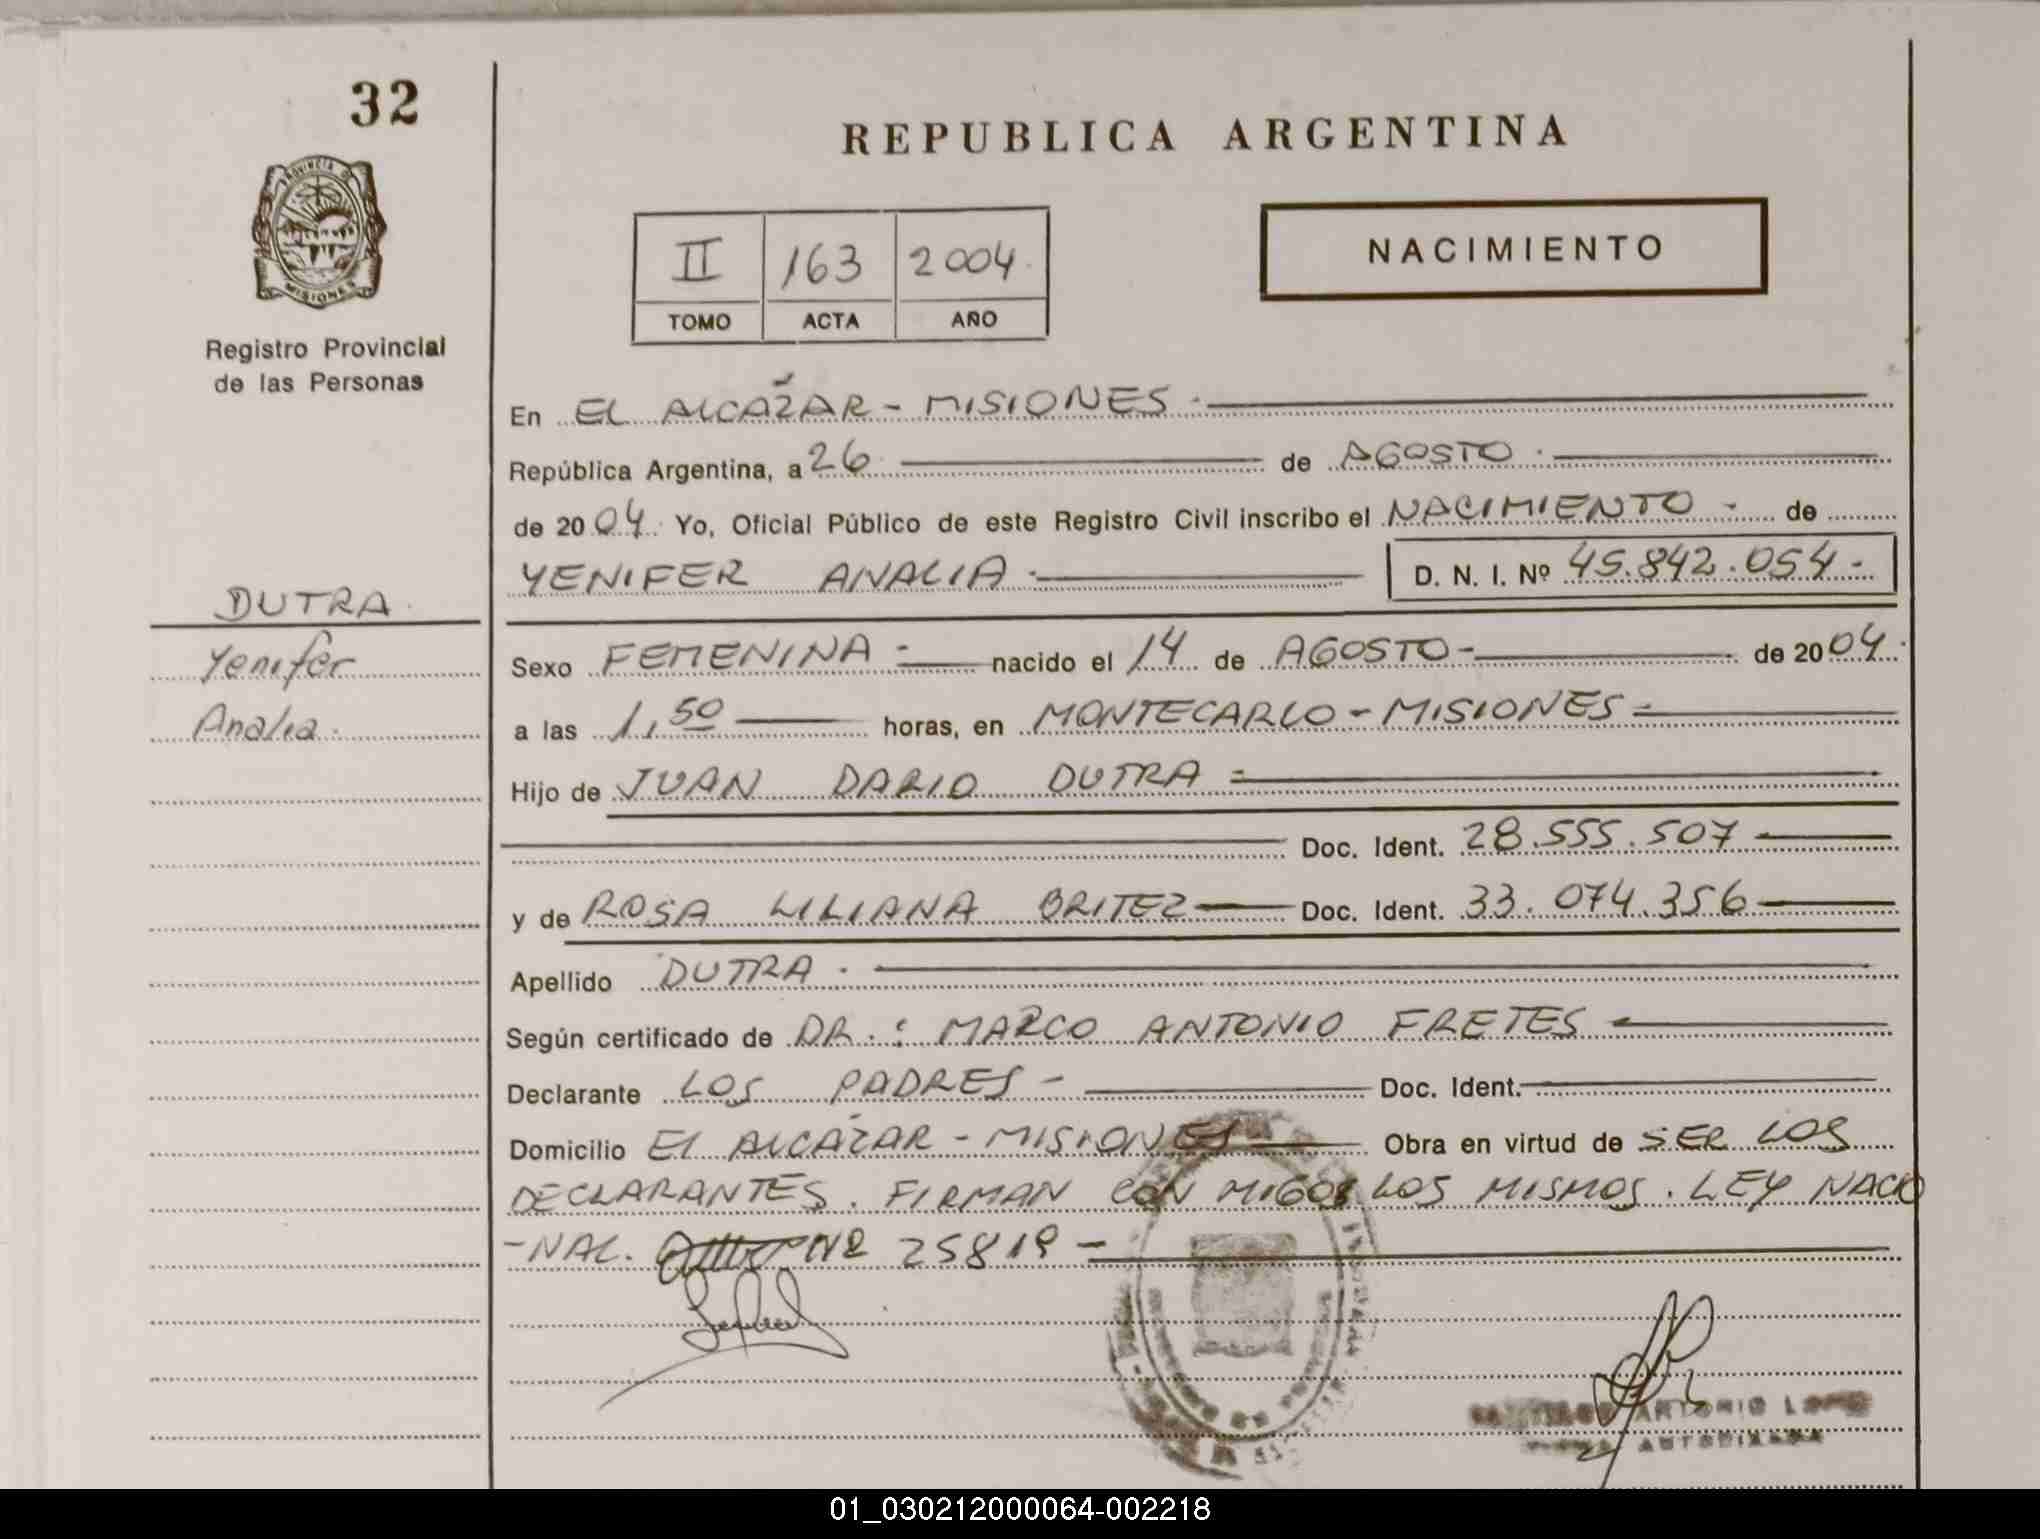 32
PROVINCIA DE
MISIONES
Registro Provincial
de las Personas
REPUBLICA ARGENTINA
II 163 2004
TOMO ACTA AÑO
NACIMIENTO
En EL ALCÁZAR - MISIONES
República Argentina, a 26 de AGOSTO
de 2004 Yo, Oficial Público de este Registro Civil inscribo el NACIMIENTO - de
YENIFER ANALIA D. N. I. Nº 45.842.054-
DUTRA
Yenifer
Analia
Sexo FEMENINA nacido el 14 de AGOSTO de 2004
a las 1,50 horas, en MONTECARLO - MISIONES
Hijo de JUAN DARIO DUTRA
Doc. Ident. 28.555.507
y de ROSA LILIANA BRITEZ Doc. Ident. 33.074.356
Apellido DUTRA
Según certificado de DR.: MARCO ANTONIO FRETES
Declarante LOS PADRES Doc. Ident.
Domicilio El ALCÁZAR - MISIONES Obra en virtud de SER LOS
DECLARANTES. FIRMAN CON MIGOS LOS MISMOS. LEY NACIO
-NAL. Nº 25819-
ANTONIO
AUTORIZADA
01_030212000064-002218